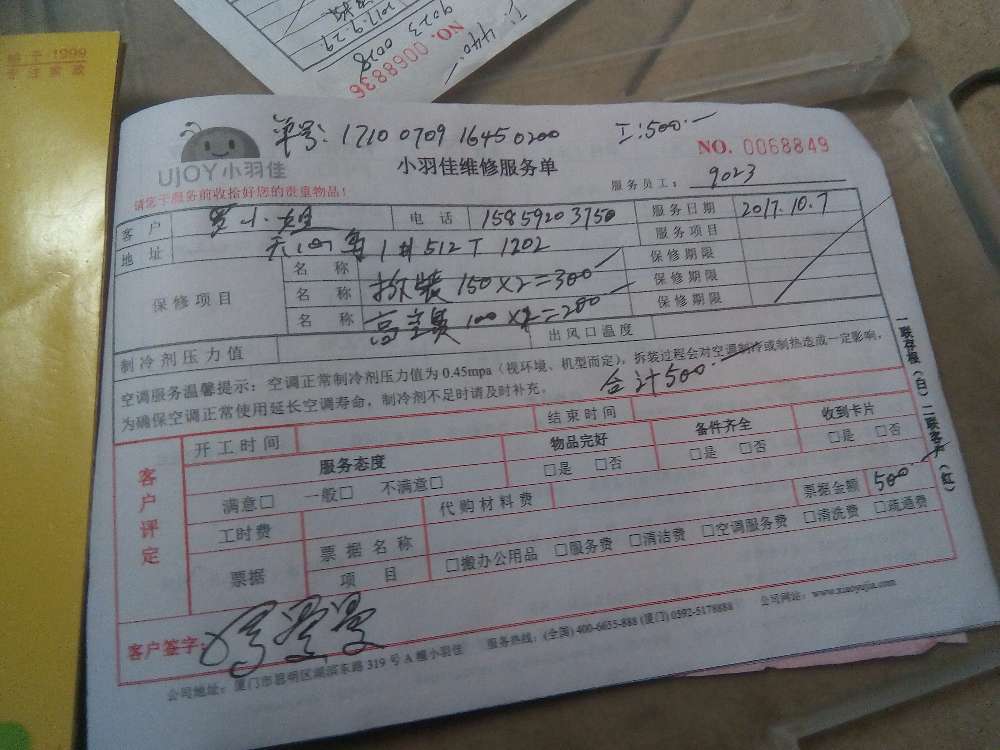 2017.9.29
9023 0028
NO. 0068836
工:440.-
单号: 1710 0709 1645 0200 工:500.-
UJOY小羽佳
小羽佳维修服务单
NO. 0068849
请您于服务前收拾好您的贵重物品!
服务员工: 9023
客户 罗小姐 电话 15859203750 服务日期 2017.10.7
地址 1# 512T 1202 服务项目
保修项目 名称 保修期限
名称 拆装 150×2=300 保修期限
名称 高空费 100×2=200 保修期限
制冷剂压力值 出风口温度
空调服务温馨提示:空调正常制冷剂压力值为0.45mpa(视环境、机型而定),拆装过程会对空调制冷或制热造成一定影响,
为确保空调正常使用延长空调寿命,制冷剂不足时请及时补充。
合计500.-
一联存根(白)二联客户(红)
客户评定
开工时间 结束时间
服务态度 物品完好 备件齐全 收到卡片
满意□ 一般□ 不满意□ □是 □否 □是 □否 □是 □否
工时费 代购材料费 票据金额 500.-
票据 票据名称
项目 □搬办公用品 □服务费 □清洁费 □空调服务费 □清洗费 □疏通费
客户签字:
公司地址:厦门市思明区湖滨东路319号A幢小羽佳 服务热线:(全国)400-6655-888 (厦门)0592-5178888 公司网站:www.xiaoyujia.com